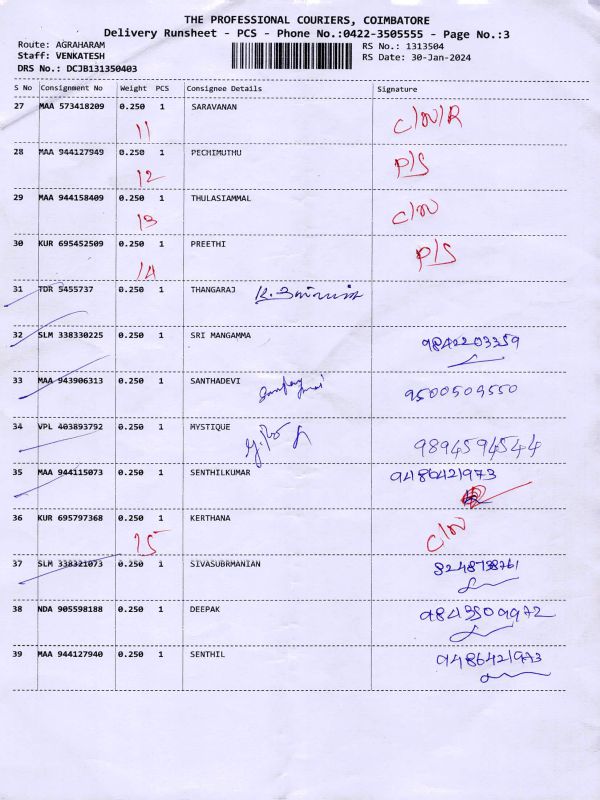 THE PROFESSIONAL COURIERS, COIMBATORE
Delivery Runsheet - PCS - Phone No.:0422-3505555 - Page No.:3
Route: AGRAHARAM RS No.: 1313504
Staff: VENKATESH RS Date: 30-Jan-2024
DRS No.: DCJB131350403
S No Consignment No Weight PCS Consignee Details Signature
27 MAA 573418209 0.250 1 SARAVANAN C/N/R
11
28 MAA 944127949 0.250 1 PECHIMUTHU P/S
12
29 MAA 944158409 0.250 1 THULASIAMMAL C/N
13
30 KUR 695452509 0.250 1 PREETHI P/S
14
31 TDR 5455737 0.250 1 THANGARAJ
32 SLM 338330225 0.250 1 SRI MANGAMMA 9842203359
33 MAA 943906313 0.250 1 SANTHADEVI 9500509550
34 VPL 403893792 0.250 1 MYSTIQUE 9894594544
35 MAA 944115073 0.250 1 SENTHILKUMAR 9486421973
36 KUR 695797368 0.250 1 KERTHANA C/N
15
37 SLM 338321073 0.250 1 SIVASUBRMANIAN
38 NDA 905598188 0.250 1 DEEPAK 9843509972
39 MAA 944127940 0.250 1 SENTHIL 9486421973